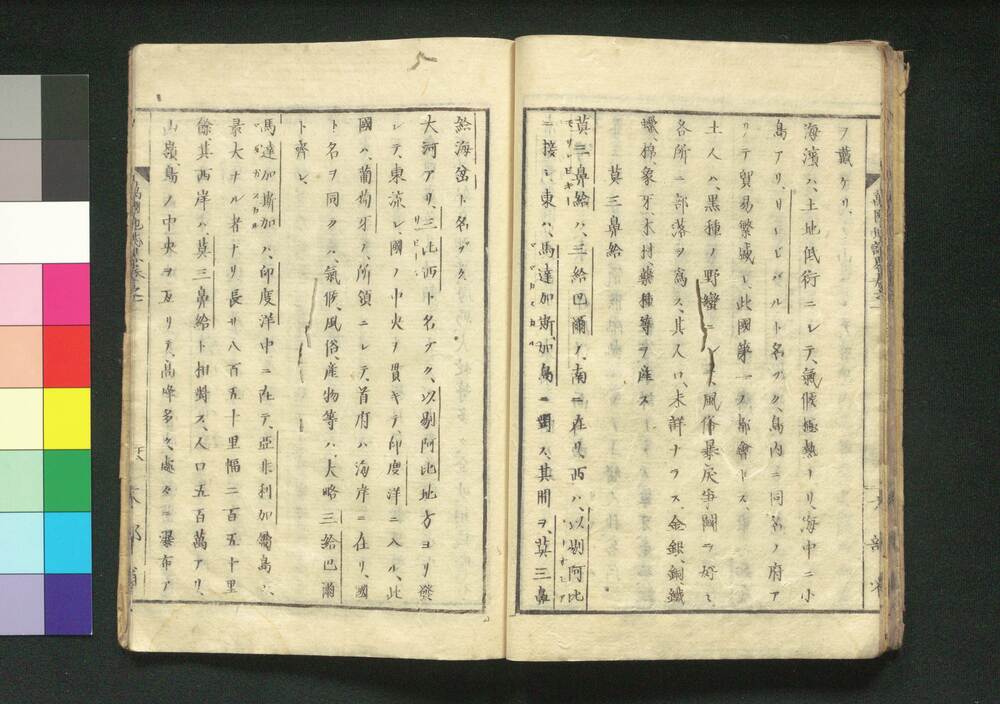 ヲ戴ケリ、
海濱ハ、土地低衍ニシテ、氣候極熱ナリ、海中ニ小
島アリ、リシビバルト名ヅク、島内ニ同名ノ府ア
リテ貿易繁盛シ、此國第一ノ都會トス、
土人ハ、黒種ノ野蠻ニシ、風俗暴戻争鬪ヲ好ミ
各所ニ部落ヲ為ス、其人口、未詳ナラス、金銀銅鐵
蠟、棉、象牙、木材、藥種等ヲ産ス
莫三鼻給
莫三鼻給ハ、三給巴爾ノ、南ニ在リ、西ハ、以剔阿比
ニ接シ、東ハ、馬達加斯加島ニ對ス、其間ヲ、莫三鼻
給海峇ト名ヅク、
大河アリ、三比西ト名ヅク、以剔阿比地方ヨリ發
シテ、東流シ、國ノ中央ヲ貫キテ、印度洋ニ入ル、此
國ハ、葡萄牙ノ、所領ニシテ、首府ハ海岸ニ在リ、國
ト名ヲ同クス、氣候、風俗、産物等ハ、大略三給巴爾
ト齊シ、
馬達加斯加ハ、印度洋中ニ在テ、亞非利加屬島ノ、
最大ナル者ナリ、長サ八百五十里幅二百五十里
餘其西岸ハ、莫三鼻給ト相對ス、人口五百萬アリ、
山嶺、島ノ中央ヲ亙リテ、高峰多ク、處々ニ瀑布ア